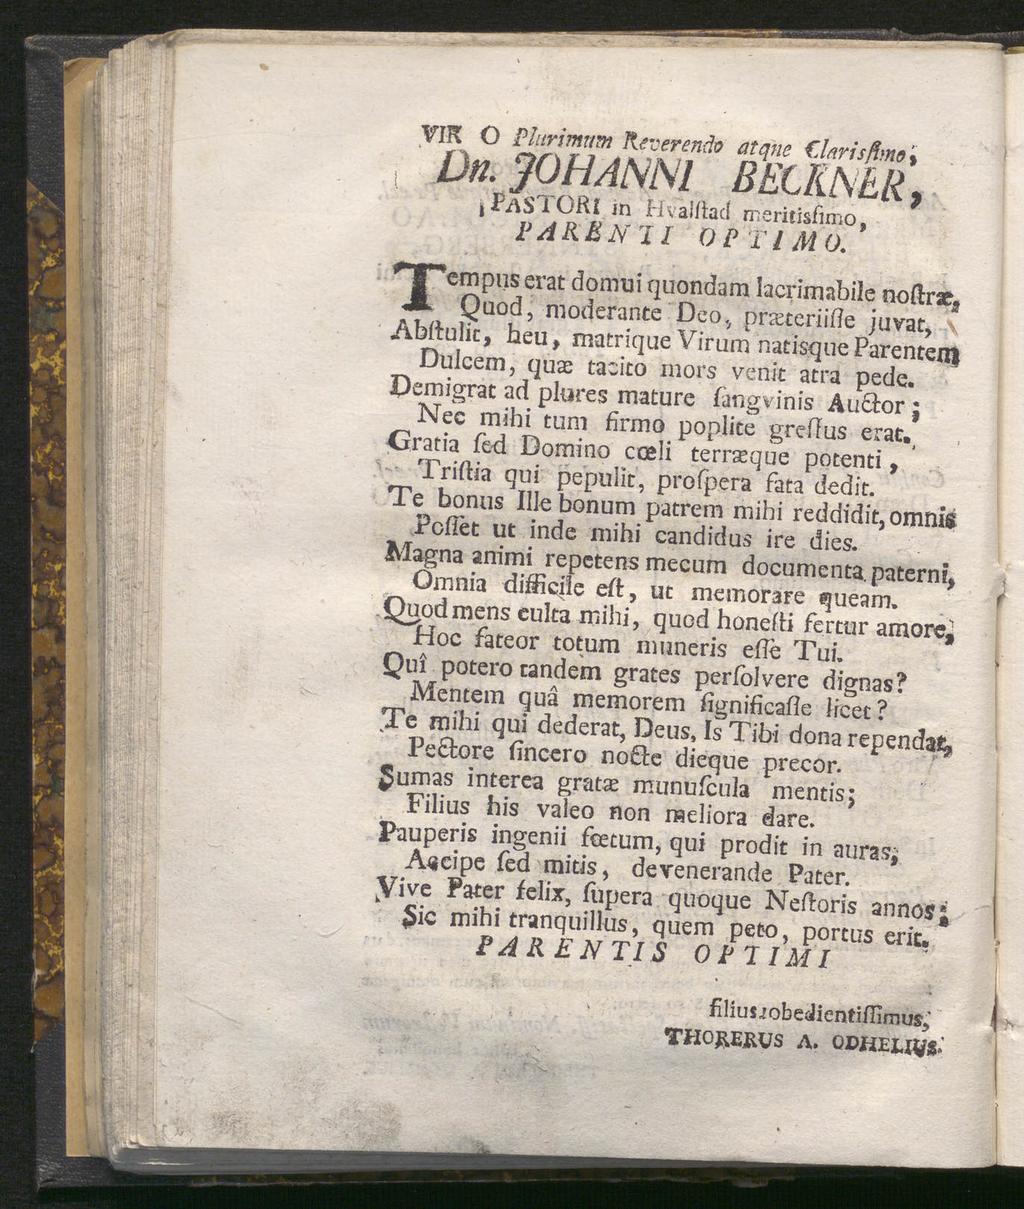 VIR O Plurimum Reverendo atque Clarisſimo,
Dn. JOHANNI BECKNER,
PASTORI in Hvalſtad meritisſimo,
PARENTI OPTIMO.
Tempus erat domui quondam lacrimabile noſtræ,
Quod, moderante Deo, præteriiſſe juvat,
Abſtulit, heu, matrique Virum natisque Parentem
Dulcem, quæ tacito mors venit atra pede.
Demigrat ad plures mature ſangvinis Auctor;
Nec mihi tum firmo poplite greſſus erat.
Gratia ſed Domino cœli terræque potenti,
Triſtia qui pepulit, proſpera fata dedit.
Te bonus Ille bonum patrem mihi reddidit, omnis
Poſſet ut inde mihi candidus ire dies.
Magna animi repetens mecum documenta paterni,
Omnia difficile eſt, ut memorare queam.
Quod mens culta mihi, quod honeſti fertur amore,
Hoc fateor totum muneris eſſe Tui.
Quî potero tandem grates perſolvere dignas?
Mentem quâ memorem ſignificaſſe licet?
Te mihi qui dederat, Deus, Is Tibi dona rependat,
Pectore ſincero nocte dieque precor.
Sumas interea gratæ munuſcula mentis;
Filius his valeo non meliora dare.
Pauperis ingenii fœtum, qui prodit in auras,
Accipe ſed mitis, devenerande Pater.
Vive Pater felix, ſupera quoque Neſtoris annos;
Sic mihi tranquillus, quem peto, portus erit.
PARENTIS OPTIMI
filius obedientiſſimus,
THORERUS A. ODHELIUS.